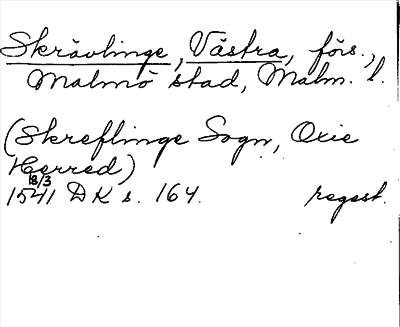 Skrävlinge, Västra, förs.,
Malmö stad, Malm. l.
(Skreflinge Sogn, Oxie
Herred)
18/3
1541 DK s. 164. regest.